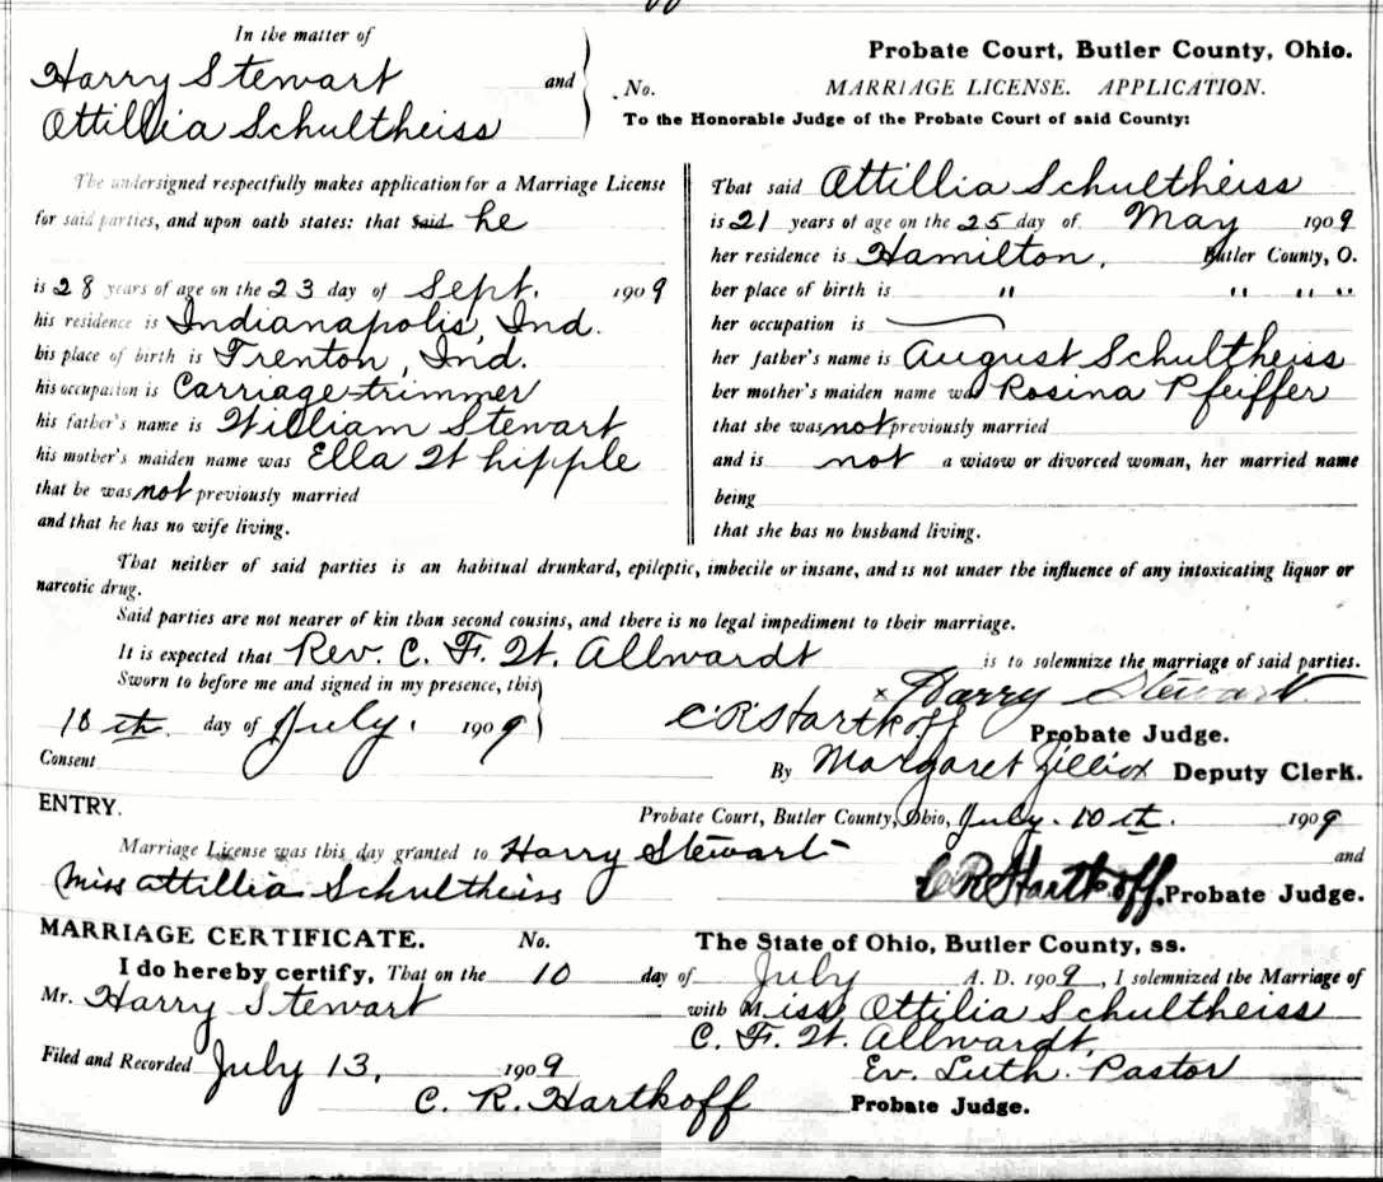 In the matter of
Harry Stewart and
Attillia Schultheiss
Probate Court, Butler County, Ohio.
No. MARRIAGE LICENSE. APPLICATION.
To the Honorable Judge of the Probate Court of said County:
The undersigned respectfully makes application for a Marriage License
for said parties, and upon oath states: that said he
is 28 years of age on the 23 day of Sept. 1909
his residence is Indianapolis, Ind.
his place of birth is Trenton, Ind.
his occupation is Carriage-trimmer
his father's name is William Stewart
his mother's maiden name was Ella Whipple
that he was not previously married
and that he has no wife living.
That said Attillia Schultheiss
is 21 years of age on the 25 day of May 1909
her residence is Hamilton, Butler County, O.
her place of birth is " " " "
her occupation is
her father's name is August Schultheiss
her mother's maiden name was Rosina Pfeiffer
that she was not previously married
and is not a widow or divorced woman, her married name
being
that she has no husband living.
That neither of said parties is an habitual drunkard, epileptic, imbecile or insane, and is not under the influence of any intoxicating liquor or
narcotic drug.
Said parties are not nearer of kin than second cousins, and there is no legal impediment to their marriage.
It is expected that Rev. C. F. W. Allwardt is to solemnize the marriage of said parties.
Sworn to before me and signed in my presence, this x Harry Stewart
10th day of July. 1909 C R Hartkoff Probate Judge.
Consent By Margaret Zilliox Deputy Clerk.
ENTRY.
Probate Court, Butler County, Ohio, July. 10th. 1909
Marriage License was this day granted to Harry Stewart and
Miss Attillia Schultheiss C R Hartkoff. Probate Judge.
MARRIAGE CERTIFICATE. No. The State of Ohio, Butler County, ss.
I do hereby certify, That on the 10 day of July A. D. 1909, I solemnized the Marriage of
Mr. Harry Stewart with Miss Ottilia Schultheiss
C. F. W. Allwardt,
Filed and Recorded July 13, 1909 Ev. Luth. Pastor
C. R. Hartkoff Probate Judge.